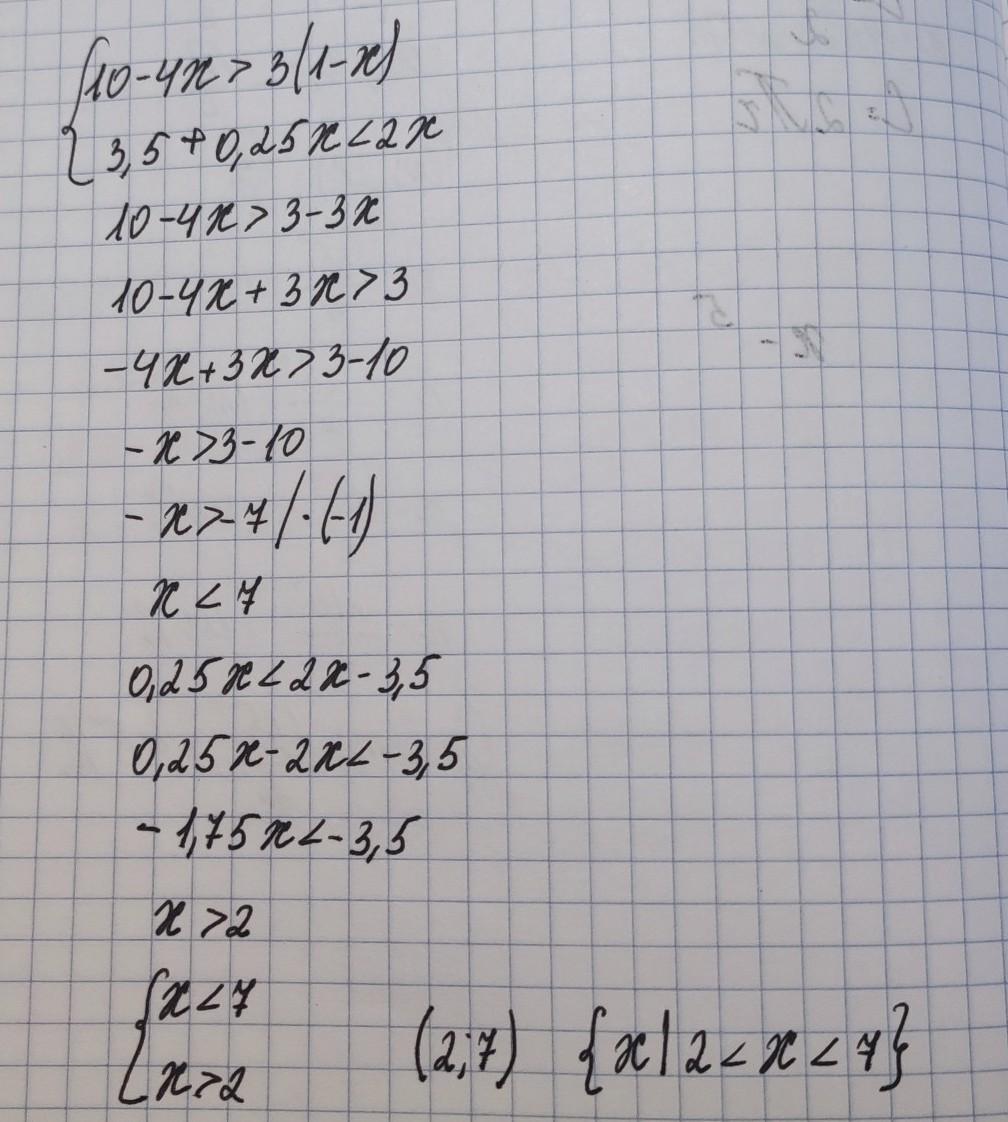 {10-4x > 3(1-x)
3,5 + 0,25x < 2x
10-4x > 3-3x
10-4x + 3x > 3
-4x+3x > 3-10
-x > 3-10
-x > -7 / · (-1)
x < 7
0,25x < 2x - 3,5
0,25x - 2x < -3,5
-1,75x < -3,5
x > 2
{x < 7
x > 2
(2;7) {x | 2 < x < 7}